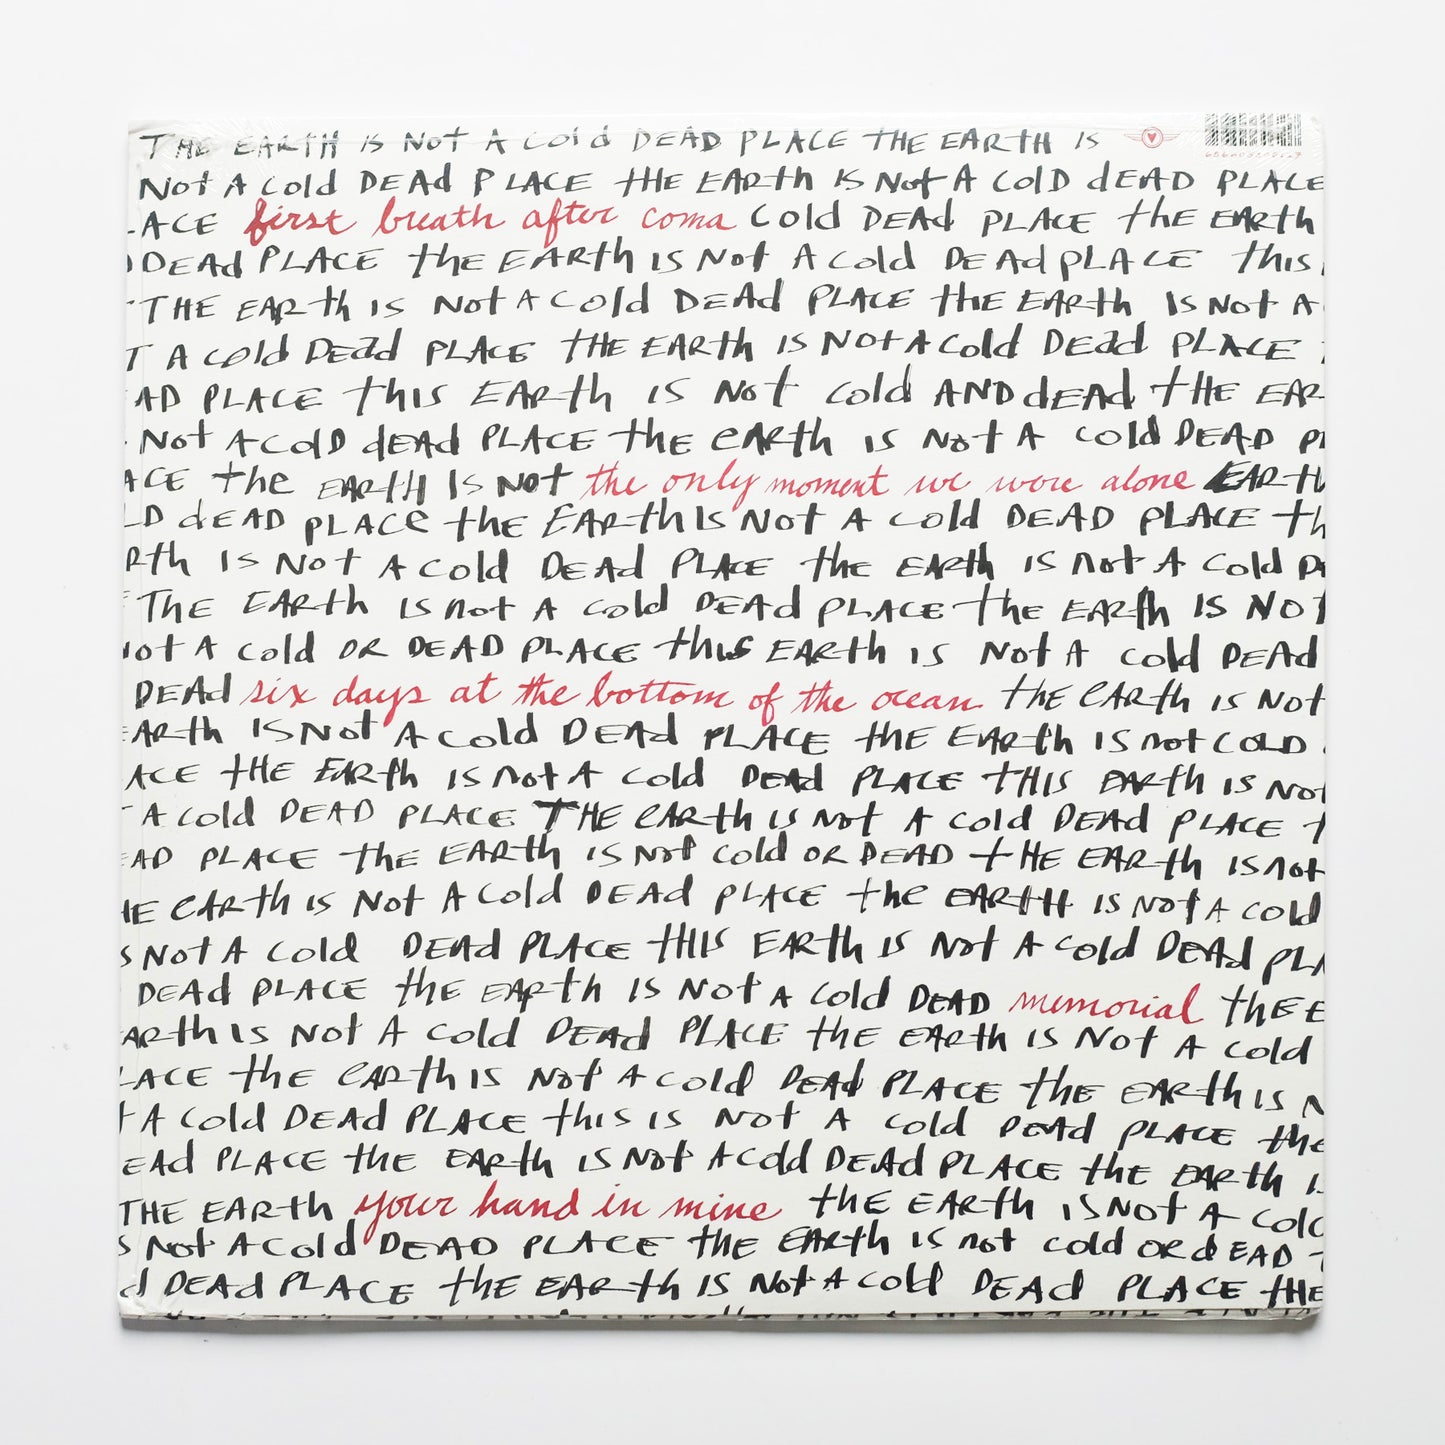 THE EARTH IS Not A Cold DEAD PLACE THE EARTH IS
Not A Cold DEAd PLACE tHE EARth IS Not A COlD dEAD PLACE
ACE first breath after coma Cold DEAd PLACE the EARth
DEAd PLACE the EARth IS Not A Cold DEAd PLACE this
THE EARth is Not A Cold DEAd PLACE tHE EARth IS Not A
T A Cold DEad PLACE tHE EARth IS Not A Cold DEad PLACE
AD PLACE this EARth IS Not Cold AND dEAd tHE EAR
Not A Cold dEAd PLACE the eARth IS Not A Cold DEAD
ACE the EARtH IS Not the only moment we were alone EARth
LD dEAD PLACe the EARth IS Not A Cold DEAD PLACE th
Rth IS Not A Cold DEAd PLACE the EARth IS not A Cold
THE EARth IS not A Cold DEAd PLACE the EARth IS NOT
ot A Cold OR DEAD PLACE this EARth IS Not A Cold DEAd
DEAd six days at the bottom of the ocean the eARth IS Not
EARth IS Not A Cold DEAd PLACE the EARth IS not COLD
ACE tHE EARth IS not A Cold DEAd PLACE tHIS EARth IS Not
T A Cold DEAD PLACE THE eARth IS not A Cold DEAd PLACE
EAD PLACE the EARth IS Not Cold OR DEAD tHE EARth IS not
HE eARth IS Not A Cold DEAd PLACE the EARtH IS Not A Cold
S Not A Cold DEAd PLACE tHIS EARth IS Not A Cold DEAd PLA
DEAd PLACE the EARth IS Not A Cold DEAD memorial tHE E
EARth IS Not A Cold DEAd PLACE the EARth IS Not A Cold
LACE the eARth IS Not A Cold DEAd PLACE the EARth IS N
t A Cold DEAd PLACE this IS Not A Cold DEAd PLACE the
EAd PLACE the EARth IS Not A Cold DEAd PLACE the EARth
THE EARth your hand in mine the EARth IS Not A Cold
S Not A Cold DEAD PLACE the EARth IS not Cold OR dEAD
d DEAd PLACE the EARth IS Not A Cold DEAd PLACE tHE